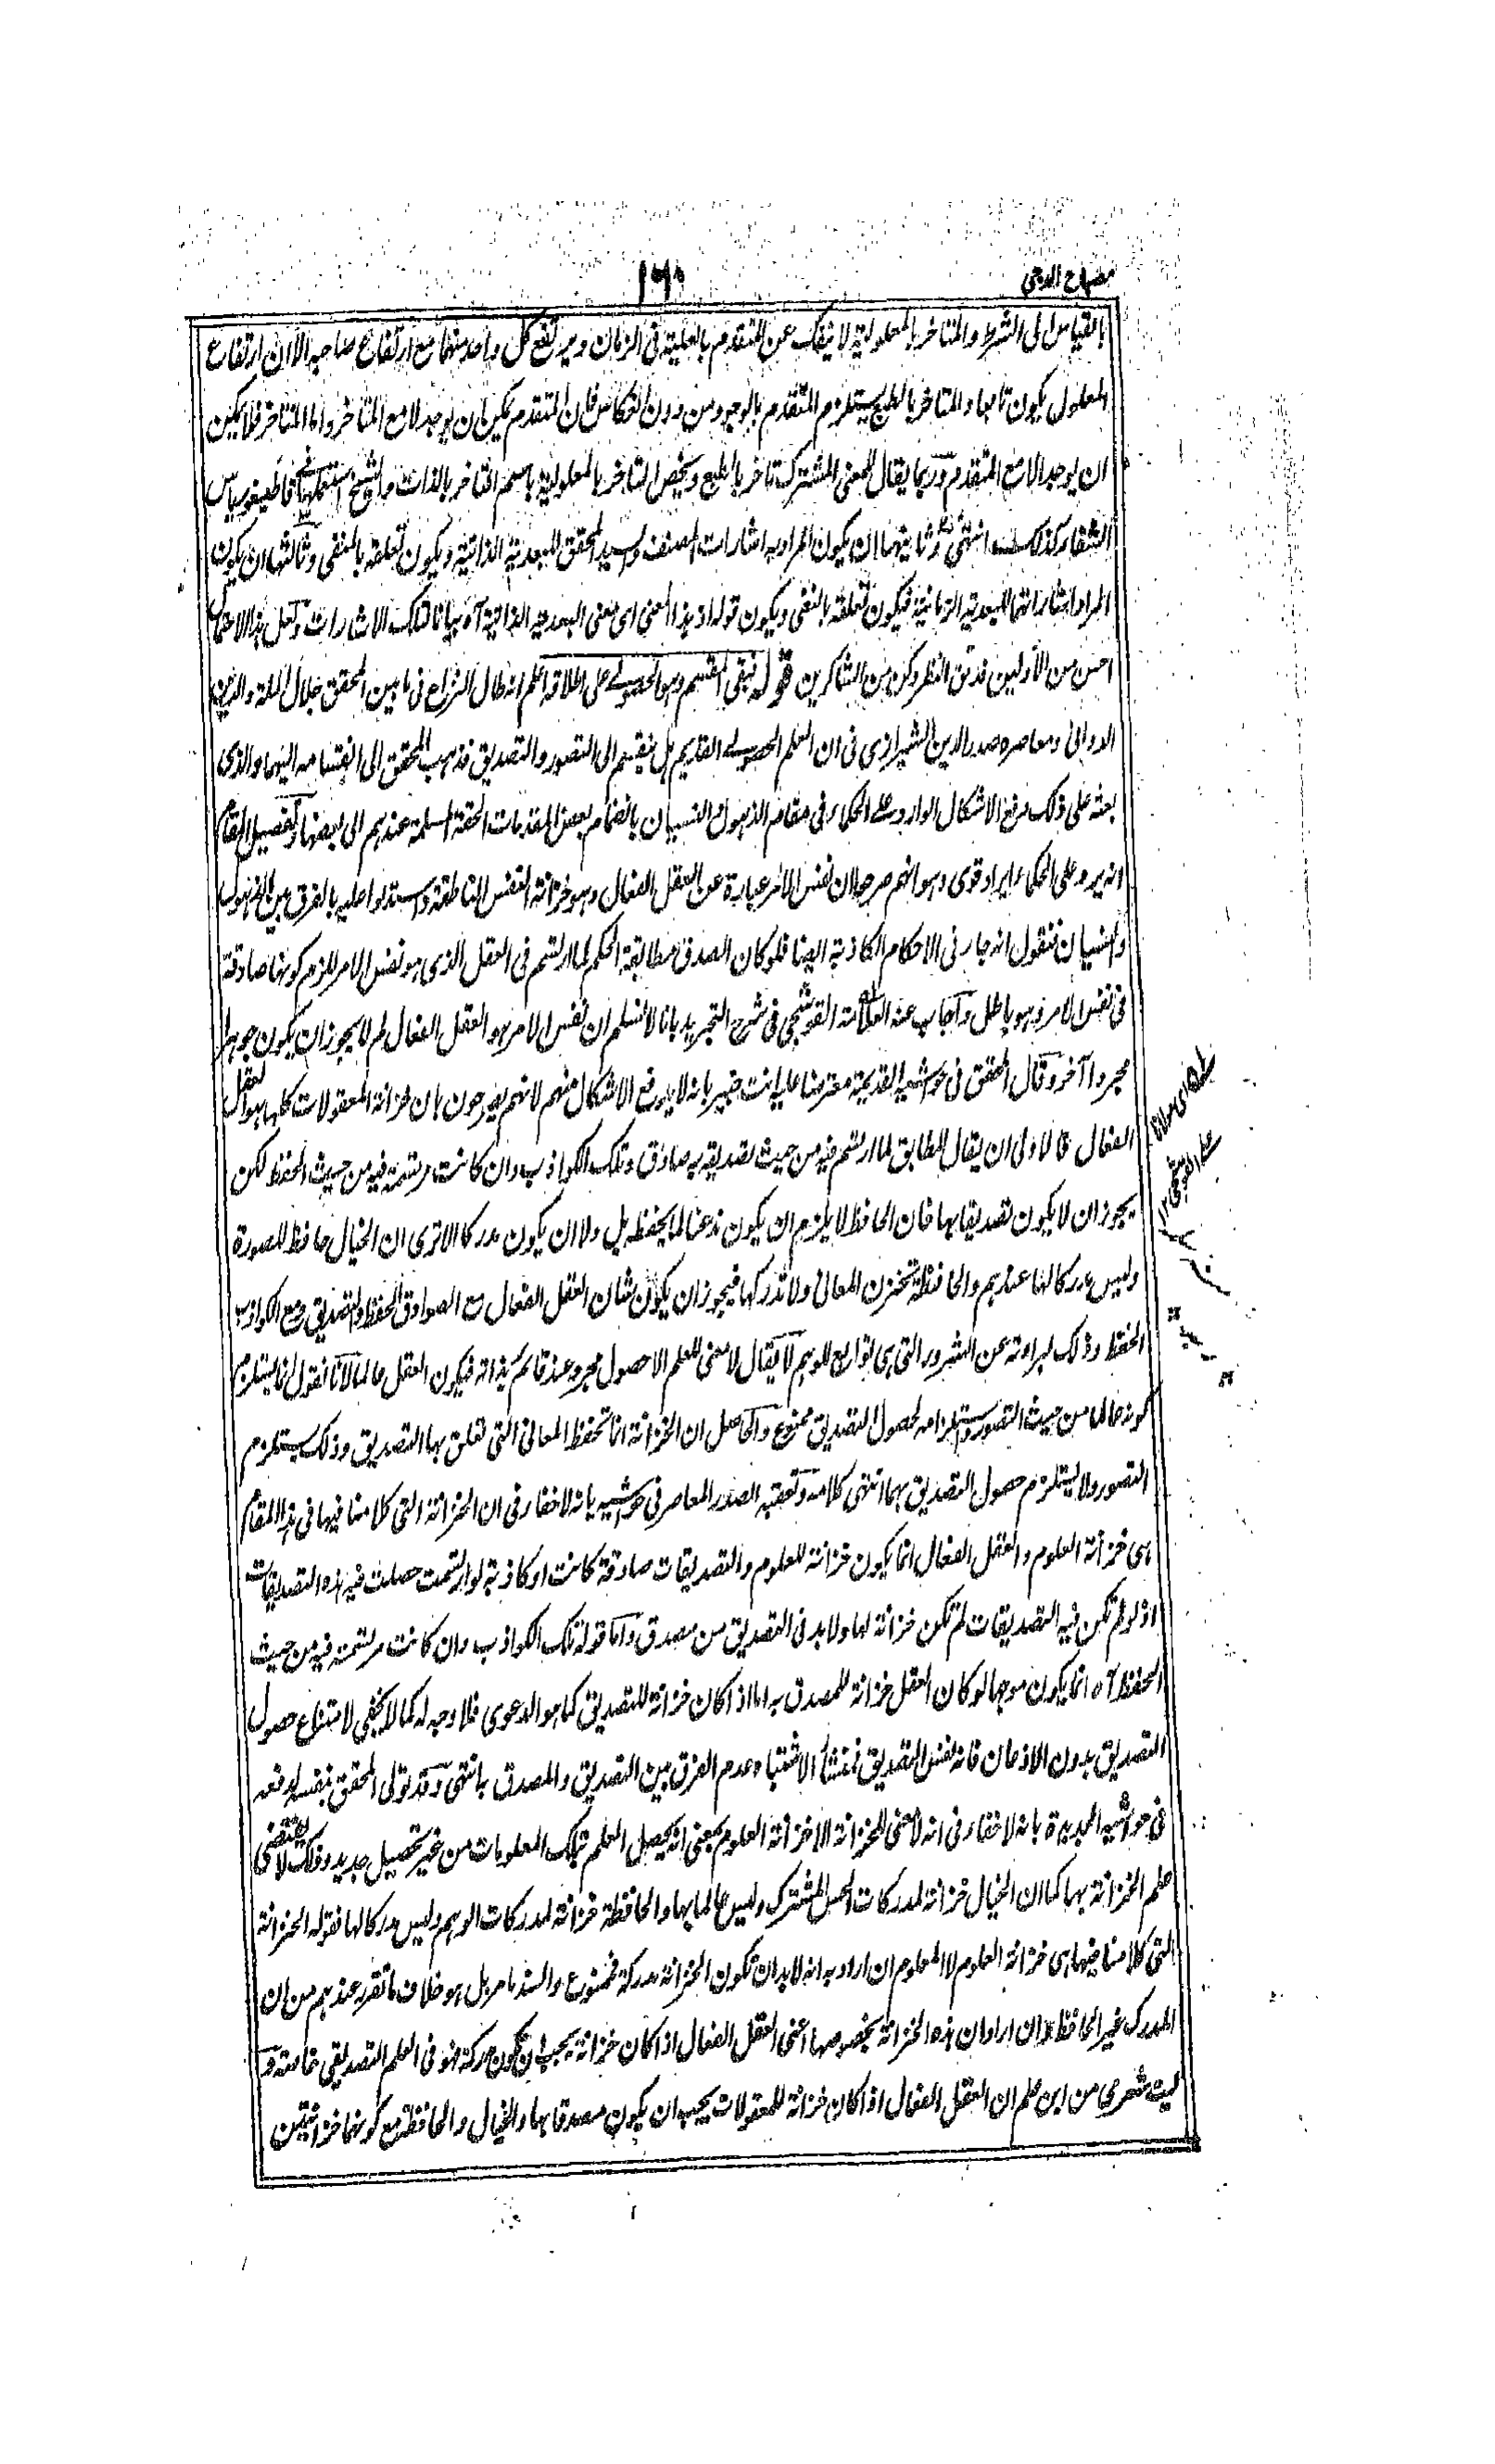 مصباح الدجى
١٦٠
بالقياس الى الشرط والمتاخر بالمعلولية لا ينفك عن المتقدم بالعلية فى الزمان ويرتفع كل واحد منهما مع ارتفاع صاحبه الا ان ارتفاع
المعلول يكون تابعا والمتاخر بالطبع يستلزم المتقدم بالوجود من دون انعكاس فان المتقدم يمكن ان يوجد لا مع المتاخر واما المتاخر فلا يمكن
ان يوجد الا مع المتقدم وربما يقال للمعنى المشترك تاخر بالطبع ويخص التاخر بالمعلولية باسم التاخر بالذات والشيخ استعملهما فى قاطيغورياس
الشفاء كذلك انتهى وثانيهما ان يكون المراد به اشارات المصنف والسيد المحقق للبعدية الذاتية ويكون تعلقه بالمنفى وثالثها ان يكون
المراد اشاراتهما للبعدية الزمانية فيكون تعلقه بالنفى ويكون قوله اذ هذا المعنى اى معنى البعدية الذاتية آه بيانا لتلك الاشارات ولعل هذا الاحتمال
احسن من الأولين فدقق النظر وكن من الشاكرين قوله فبقى المقسم وهو الحصولى على اطلاقه اعلم انه طال النزاع فى ما بين المحقق جلال الملة والدين
الدوانى ومعاصره صدر الدين الشيرازى فى ان العلم الحصولى القديم هل ينقسم الى التصور والتصديق فذهب المحقق الى انقسامه اليهما والذى
بعثه على ذلك دفع الاشكال الوارد على الحكماء فى مقام الذهول والنسيان بانضمام بعض المقدمات الحقة المسلمة عندهم الى بعضها وتفصيل المقام
انه يرد على الحكماء ايراد قوى وهو انهم صرحوا ان نفس الامر عبارة عن العقل الفعال وهو خزانة النفس الناطقة واستدلوا عليه بالفرق بين الذهول
والنسيان فنقول انه جار فى الاحكام الكاذبة ايضا فلو كان الصدق مطابقة الحكم لما ارتسم فى العقل الذى هو نفس الامر للزم كونها صادقة
فى نفس الامر وهو باطل وآجاب عنه العلامة القوشجى فى شرح التجريد بانا لا نسلم ان نفس الامر هو العقل الفعال لم لا يجوز ان يكون جوهرا
مجردا آخر وقال المحقق فى حواشيه القديمة معترضا عليه انت خبير بانه لا يدفع الاشكال منهم لانهم يصرحون بان خزانة المعقولات كلها هو العقل
الفعال فالاولى ان يقال المطابق لما ارتسم فيه من حيث تصديقه به صادق وتلك الكواذب وان كانت مرتسمة فيه من حيث الحفظ لكن
يجوز ان لا يكون تصديقا بها فان الحافظ لا يلزم ان يكون مذعنا لما يحفظه بل ولا ان يكون مدركا الا ترى ان الخيال حافظ للصورة
وليس مدركا لها عندهم والحافظة تختزن المعانى ولا تدركها فيجوز ان يكون شان العقل الفعال مع الصوادق الحفظ والتصديق ومع الكواذب
الحفظ وذلك لبراءته عن الشرور التى هى توابع للوهم لا يقال لا معنى للعلم الا حصول مجرد عند قائم بذاته فيكون العقل عالما لانا نقول انما يستلزم
كونه عالما من حيث التصور واستلزامه لحصول التصديق ممنوع والحاصل ان الخزانة انما تحفظ المعانى التى تعلق بها التصديق وذلك يستلزم
التصور ولا يستلزم حصول التصديق بهما انتهى كلامه وتعقبه الصدر المعاصر فى حواشيه بانه لا خفاء فى ان الخزانة التى كلامنا فيها فى هذا المقام
هى خزانة العلوم والعقل الفعال انما يكون خزانة للعلوم والتصديقات صادقة كانت او كاذبة لو ارتسمت حصلت فيه هذه التصديقات
اذ لو لم تكن فيه التصديقات لم تكن خزانة لها ولا بد فى التصديق من مصدق واما قوله تلك الكواذب وان كانت مرتسمة فيه من حيث
الحفظ آه انما يكون موجها لو كان العقل خزانة للمصدق به اما اذا كان خزانة للتصديق كما هو الدعوى فلا وجه له كما لا يخفى لامتناع حصول
التصديق بدون الاذعان فانه نفس التصديق فمنشأ الاشتباه عدم الفرق بين التصديق والمصدق به انتهى وقد تولى المحقق بنفسه لدفعه
فى حواشيه الجديدة بانه لا خفاء فى انه لا معنى للخزانة الا خزانة العلوم بمعنى انه يحصل العلم بتلك المعلومات من غير تحصيل جديد وذلك لا يقتضى
علم الخزانة بها كما ان الخيال خزانة لمدركات الحس المشترك وليس عالما بها والحافظة خزانة لمدركات الوهم وليس مدركا لها فقوله الخزانة
التى كلامنا فيها هى خزانة العلوم لا المعلوم ان اراد به انه لا بد ان تكون الخزانة مدركة فممنوع والسند ما مر بل هو خلاف ما تقرر عندهم من ان
المدرك غير الحافظ وان اراد ان هذه الخزانة بخصوصها اعنى العقل الفعال اذا كان خزانة يجب ان تكون مدركة فهو فى العلم التصديقى خاصة و
ليت شعرى من اين علم ان العقل الفعال اذا كان خزانة للمعقولات يجب ان يكون مصدقا بها والخيال والحافظة مع كونهما خزانتين
اى مولانا
على القوشجى ١٢